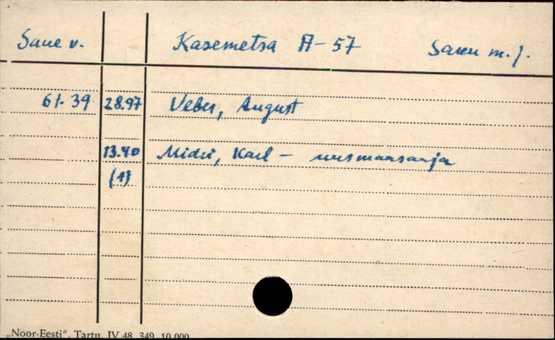 Saue v. Kasemetsa A-57 Saue m. j.
61-39 28.97 Veber, August
13.40 Midri, Karl - uusmaasaaja
(1)
„Noor-Eesti“, Tartu, IV 48. 349. 10.000